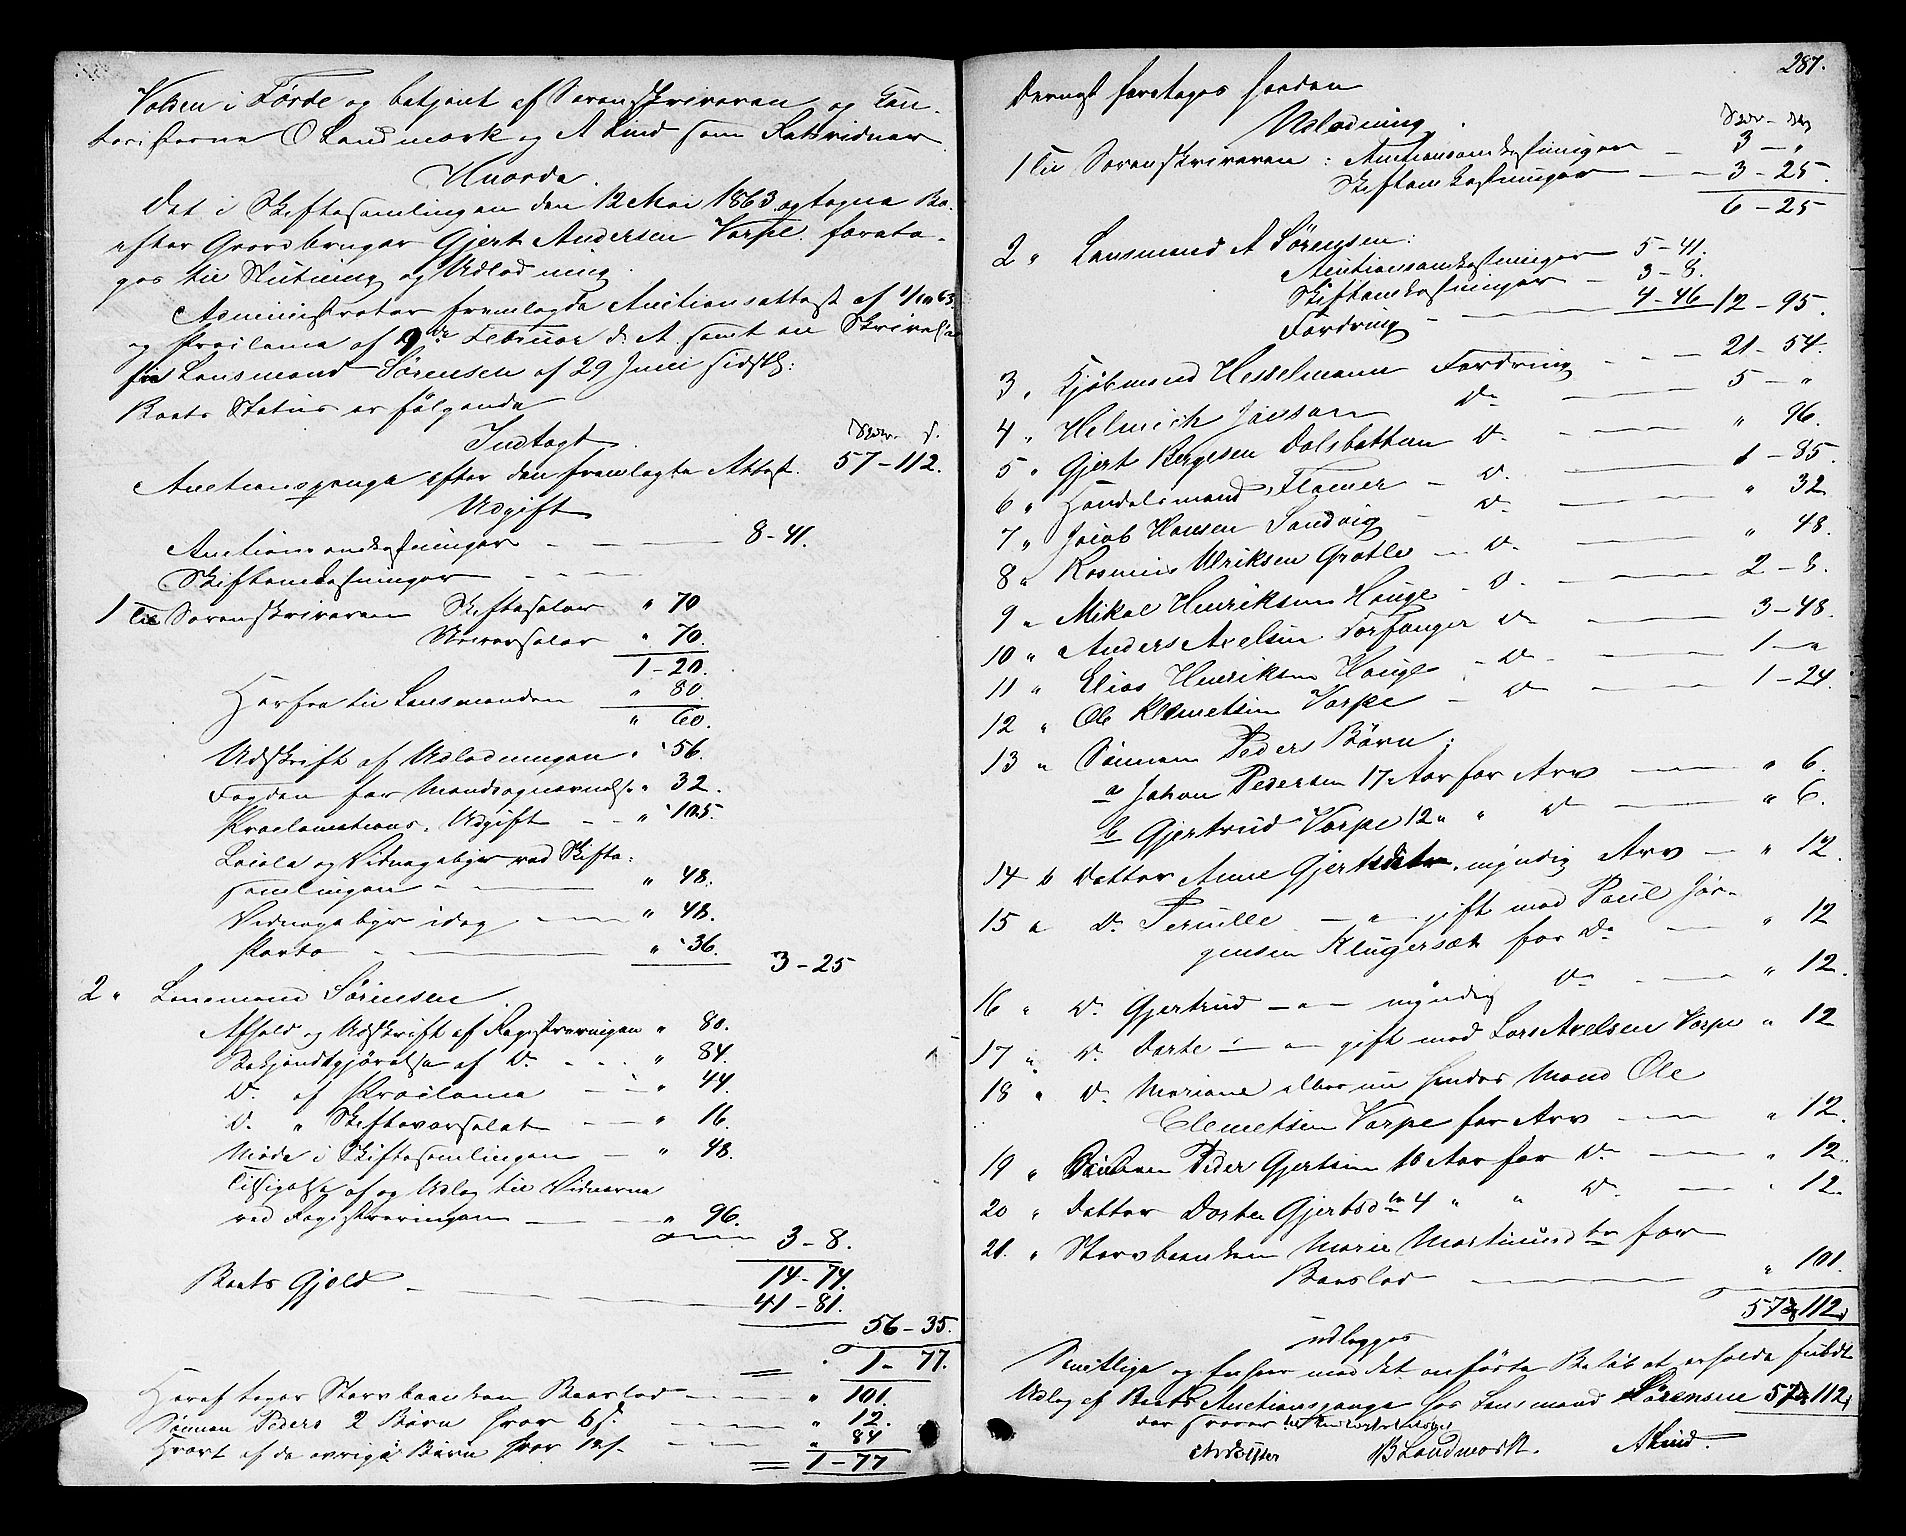 Volsen i Förde og betjent af Sorenskriveren og Con-
toristerne O Landmark og A Lind som Retsvidner.
Hvorda
Det i Skiftesamlingen den 12 Mai 1863 optagne Bo
efter Gaardbruger Gjert Andersen Varpe foreta-
ges til Slutning og Udlodning.
Administrator fremlagde Auctionsattest af 1/10 63
og Proclama af 9de Februar d. A. samt en Skrivelse
fra Lensmand Sörensen af 29 Juni sidstl:
Boets Status er fölgende
Indtægt
Auctionspenge efter den fremlagte Attest. 57 - 112.
Udgift
Auctionsomkostninger - 8 - 41.
Skifteomkostninger
1 Til Sorenskriveren Skiftesalær " 70
" 70.
1 - 20.
Herfra til Lensmanden " 80.
" 60.
Udskrift af Udlodningen " 56.
Fogden for " 32.
Proclamations Udgift " 105.
Locale og Vidnegebyr ved Skifte-
samlingen " 48.
Vidnegebyr idag " 48.
Porto " 36.
3 - 25
2 " Lensmand Sörensen.
Afhold og Udskrift af Registreringen " 80.
Bekjendtgjörelse af Do " 84.
Do af Proclama " 44.
Do " " 16.
Möde i Skiftesamlingen " 48.
Tilsigelse af og Udlæg til Vidnerne
ved Registreringen " 96.
3 - 8.
14 - 74.
Boets Gjeld 41 - 81.
56 - 35.
1 - 77.
Heraf tager Stervboenken Boeslod " 101.
Sönnen Peders 2 Börn hver 6 s. " 12.
Hvert af de övrige Börn hver 12 s. " 84
1 - 77
287.
Dernæst foretoges saadan
Udlodning.
1 Til Sorenskriveren: Auctionsomkostninger - 3 - "
Skifteomkostninger - 3 - 25.
6 - 25
2 " Lensmand A Sörensen:
Auctionsomkostninger 5 - 41.
Skifteomkostninger - 3 - 8.
Fordring - 4 - 46 12 - 95.
3 " Kjöbmand Hesselmann Fordring 21 - 54.
4 " Helmich Do 5 - "
5 " Gjert Bergesen Dalsbotten Do " 96.
6 " Handelsmand Flamer - Do 1 - 85.
7 " Jacob Hansen Sandvig - Do " 32
8 " Rasmus Ulriksen Grotle - Do " 48.
9 " Mikal Henriksen Hauge - Do 2 - 8.
10 " Anders Axelsen Torfanger Do 3 - 48.
11 " Elias Henriksen Hauge - Do 1 - "
12 " Ole Klemetsen Varpe - Do 1 - 24.
13 " Sönnen Peders Börn:
a Johan Pedersen 17 Aar for Arv " 6.
b Gjertrud Varpe 12 " " Do " 6.
14 " Datter Anne Gjertsdatter, myndig Arv " 12.
15 " Do Pernille - " - gift med Paul Jör-
gensen Klugersæt for Do " 12
16 " Do Gjertrud - " - myndig Do " 12.
17 " Do Dorte - " - gift med Lars Axelsen Varpe " 12
18 " Do Mariane eller nu hendes Mand Ole
Clemetsen Varpe for Arv " 12.
19 " Sönnen Peder Gjertsen 10 Aar for Do " 12.
20 " Datter Dorte Gjertsdtr 4 " " Do " 12.
21. " Stervboenken Marie Martinusdtr for
Boeslod " 101.
57 112
udlægges
Samtlige og Enhver med det anförte Belöb at erholde fuldt
Udlæg af Boets Auctionspenge hos Lensmand Sörensen 57 112
der svarer
B Landmark. A Lind.